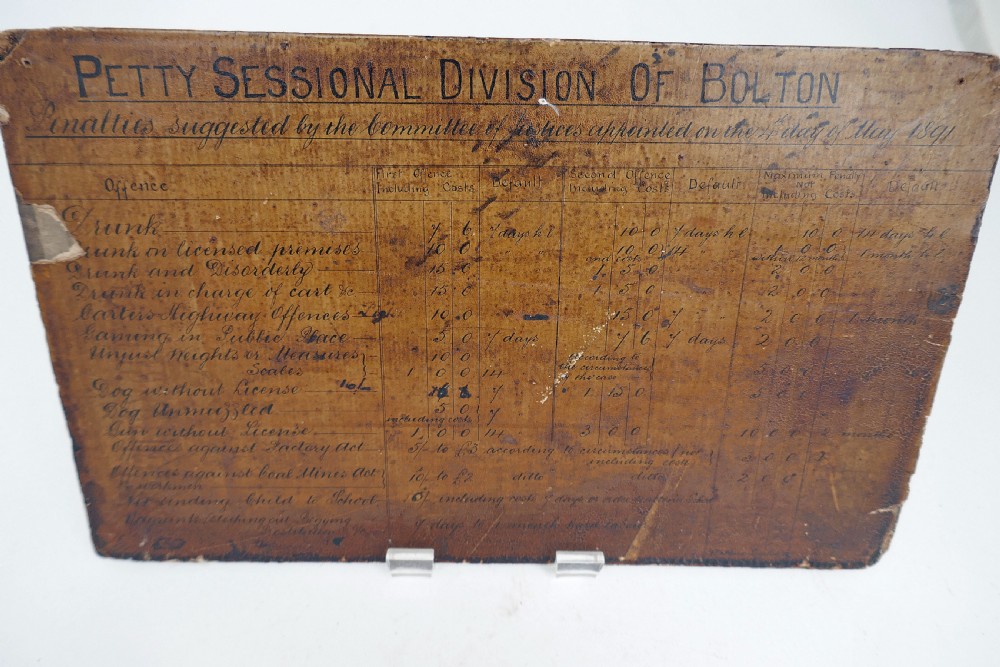 PETTY SESSIONAL DIVISION OF BOLTON
Penalties suggested by the Committee of Justices appointed on the day of May 1891
Offence First Offence Including Costs Default Second Offence Including Costs Default Maximum Penalty Not Including Costs Default
Drunk 7 6 7 days h l 10 0 7 days h l 10 0 14 days h l
Drunk on licensed premises 10 0 " " 10 0 14 " " 1 0 0 1 month h l
and costs
Drunk and Disorderly 15 0 1 5 0 2 0 0
Drunk in charge of cart &c 15 0 1 5 0 2 0 0
Carters Highway Offences 10 0 15 0 7 2 0 0 1 month
Gaming in Public Place 5 0 7 days 7 6 7 days 2 0 0
Unjust Weights or Measures 10 0 According to
Scales 1 0 0 14 the circumstances of the case
Dog without License 10/- 7 1 15 0 5 0 0
Dog Unmuzzled 5 0 7
including costs
Gun without License 1 0 0 14 3 0 0 10 0 0 2 months
Offences against Factory Act 5/- to £5 according to circumstances (not including costs)
Offences against Coal Mines Act 10/- to £2 ditto ditto 2 0 0
Not sending Child to School 5/- including costs days
Vagrants Sleeping out Begging 7 days to 1 month hard labor